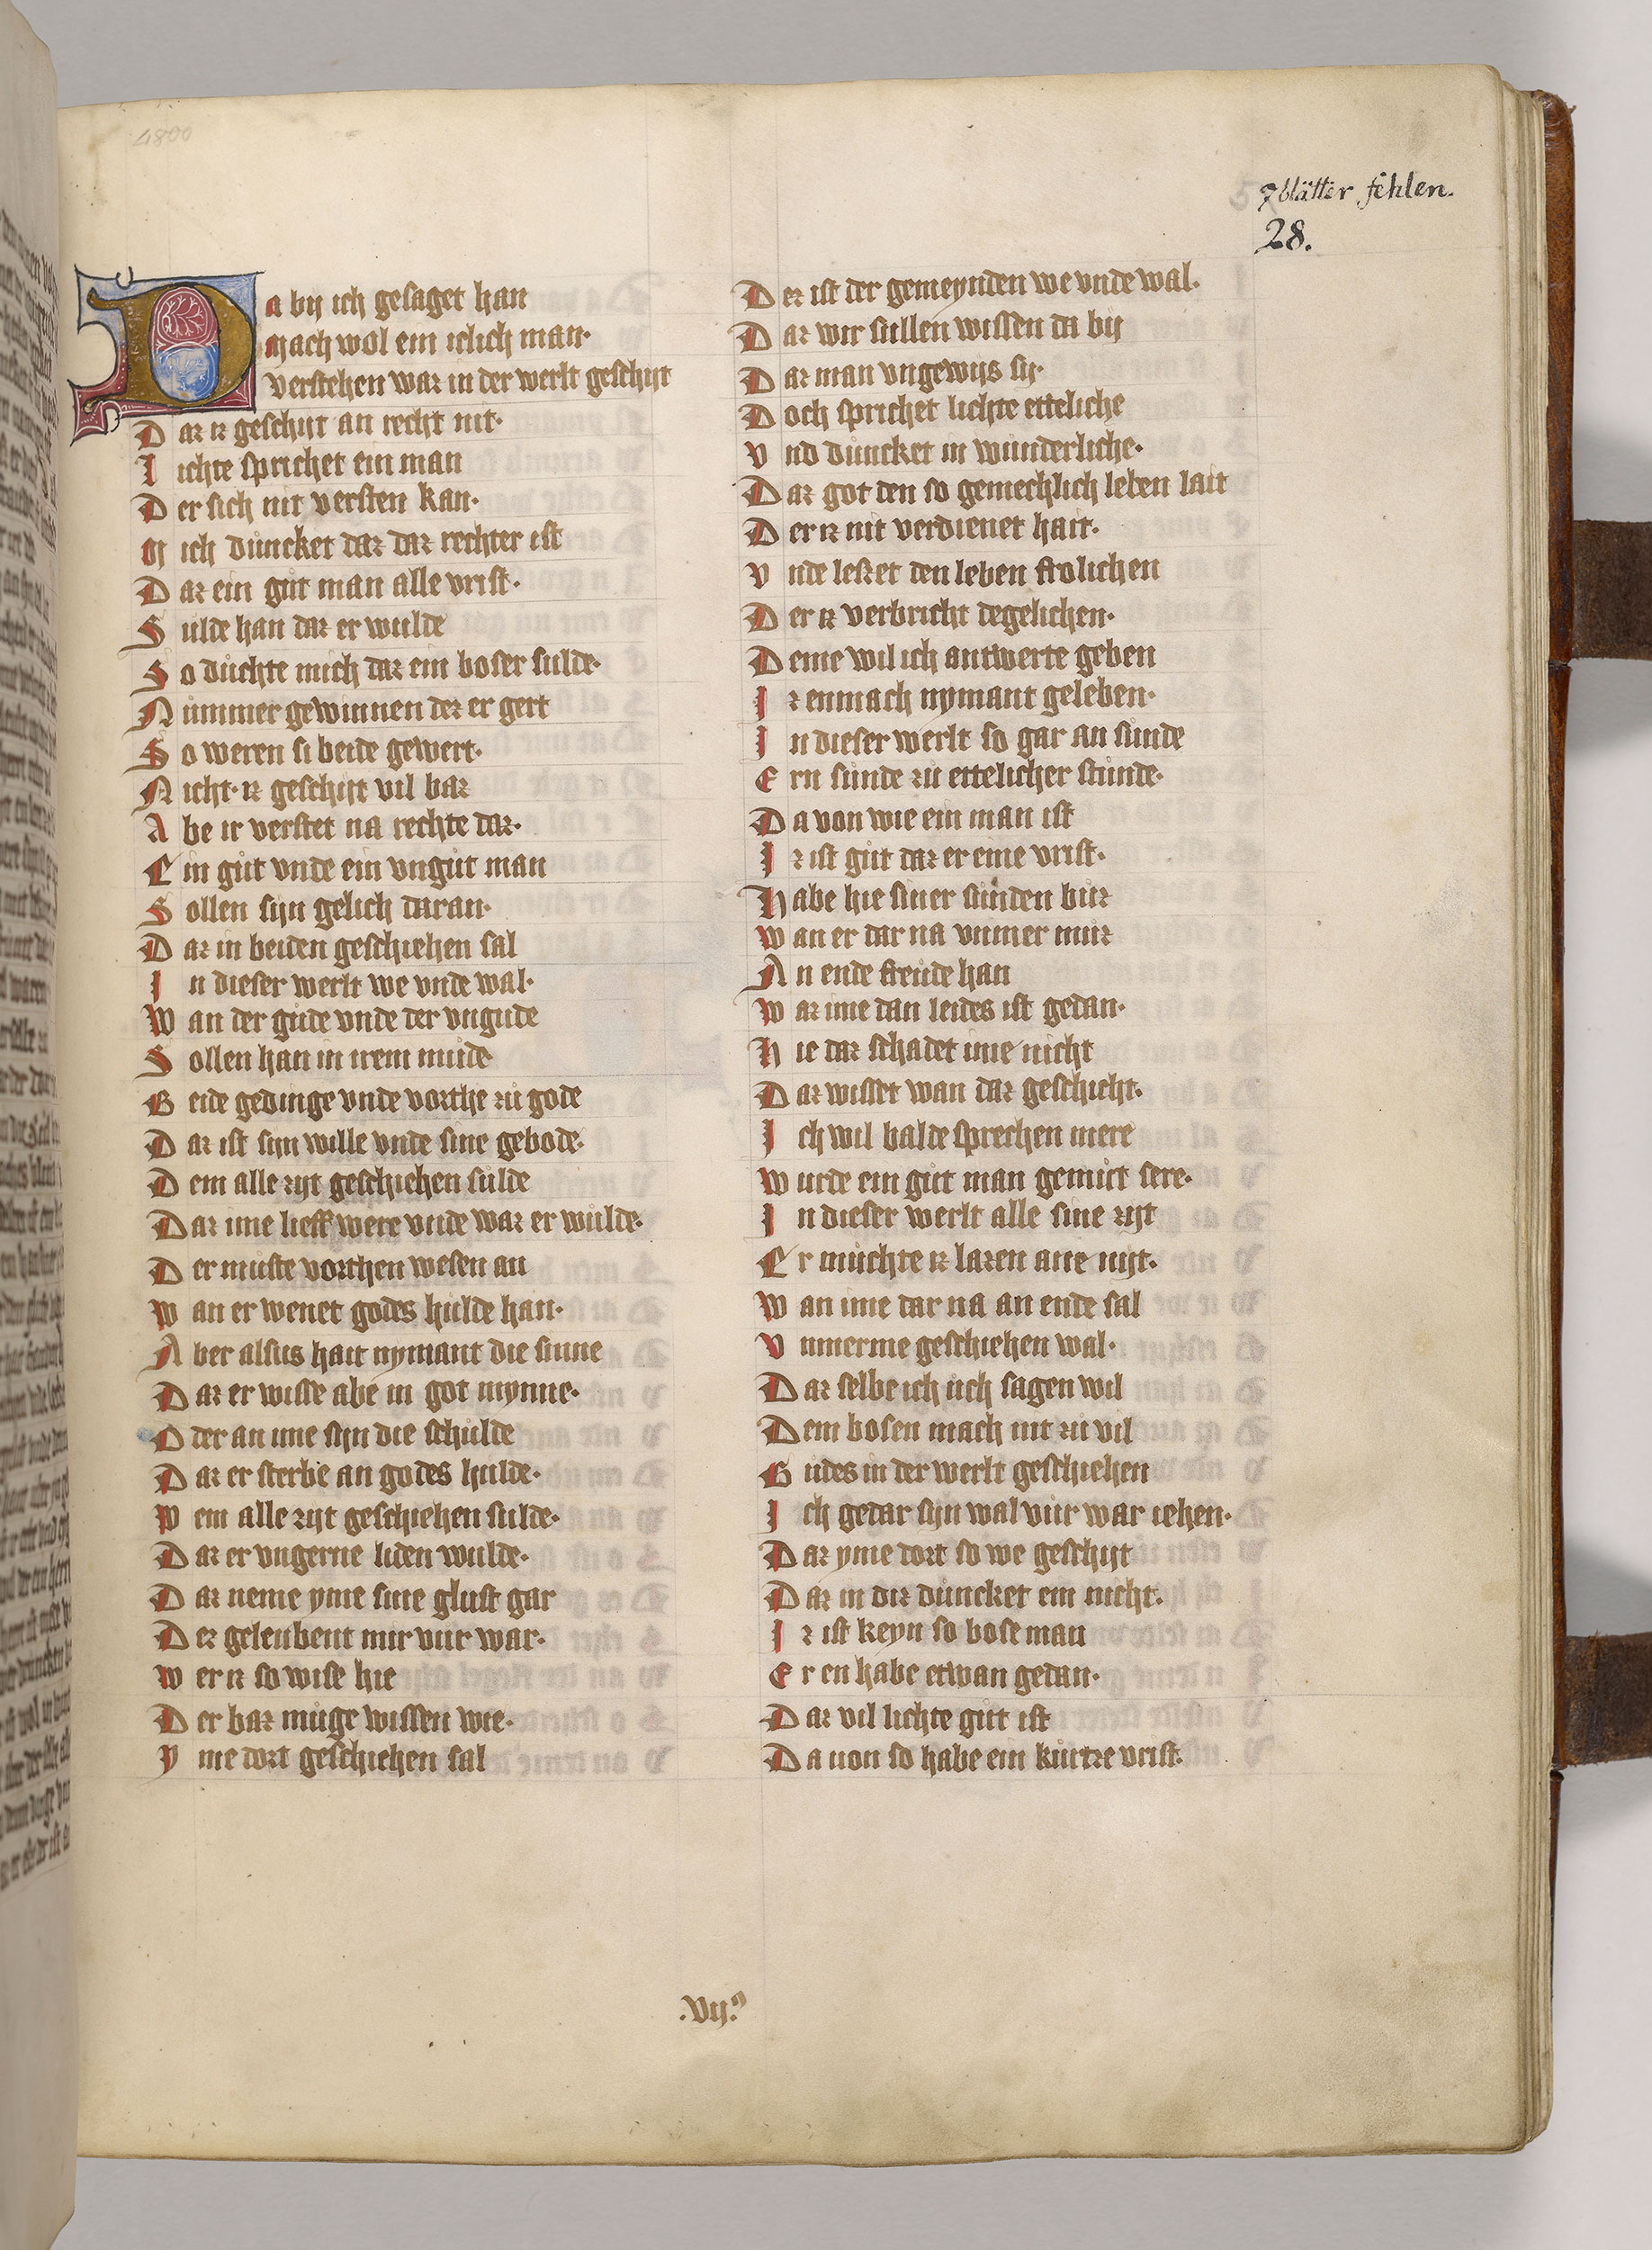 4800
7 blätter fehlen.
28.
Da bij ich gesaget han
mach wol ein iclich man·
verstehen waz in der werlt geschijt
D az iz geschijt an recht nit·
l ichte sprichet ein man
D er sich nit versten kan·
M ich důncket daz daz rechter ist
D az ein gůt man alle vrist·
S ulde han daz er wulde
S o důchte mich daz ein boser sulde·
N ůmmer gewinnen dez er gert
S o weren si beide gewert·
N icht· iz geschijt vil baz
A be ir verstet na rechte daz·
E in gůt vnde ein vngůt man
S ollen sijn gelich daran·
D az in beiden geschiehen sal
I n dieser werlt we vnde wal·
W an der gůde vnde der vngude
S ollen han in irem můde
B eide gedinge vnde vorthe zů gode
D az ist sijn wille vnde sine gebode·
D em alle zijt geschiehen sulde
D az ime lieff were vnde waz er wůlde·
D er můste vorthen wesen an
W an er wenet godes hůlde han·
A ber alsus hait nymant die sinne
D az er wisse abe in got mynne·
O der an ime sijn die schůlde
D az er sterbe an godes hulde·
W em alle zijt geschiehen sulde·
D az er vngerne liden wulde·
D az neme yme sine glust gar
D ez geleubent mir vur war·
W er iz so wise hie
D er baz můge wissen wie·
Y me dort geschiehen sal
D ez ist der gemeynden we vnde wal·
D az wir sullen wissen da bij
D az man vngewijs sij·
D och sprichet lichte etteliche
V nd důncket in wůnderliche·
D az got den so gemechlich leben lait
D er iz nit verdienet hait·
V nde leszet den leben frolichen
D er iz verbricht degelichen·
D eme wil ich antwerte geben
I z enmach nymant geleben·
I n dieser werlt so gar an sůnde
E rn sunde zů ettelicher stůnde·
D a von wie ein man ist
I z ist gůt daz er eine vrist·
H abe hie siner sůnden bůz
W an er dar na vmmer můz
A n ende freůde han
W az ime dan leides ist gedan·
H ie daz schadet ime nicht
D az wisset wan daz geschicht·
I ch wil balde sprechen mere
W urde ein gůt man gemůt sere·
I n dieser werlt alle sine zijt
E r můchte iz lazen ane nijt·
W an ime dar na an ende sal
V mmerme geschiehen wal·
D az selbe ich ůch sagen wil
D em bosen mach nit zů vil
G udes in der werlt geschiehen
I ch gedar sijn wal vůr war iehen·
D az yme dort so we geschijt
D az in diz důncket ein nicht·
I z ist keyn so bose man
E r en habe etwan gedan·
D az vil lichte gůt ist
D a uon so habe ein kůrtze vrist·
·vij·